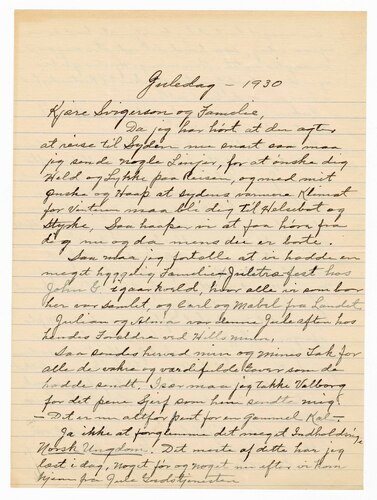 Juledag - 1930
Kjære Svigerson og Familie,
Da jeg har hört at du agter
at reise til Syden nu snart saa maa
jeg sende nogle Linjer, for at önske dig
Held og Lykke paa Reisen, og med mit
Önske og Haap at sydens varmere Klimat
for Vinteren maa bli dig til Helsebot og
Styrke, Saa haaper vi at faa höre fra
dig nu og da mens du er borte.
Saa maa jeg fortælle at vi hadde en
meget hyggelig Familie Juletræfest hos
John C. igaarkveld, hvor alle vi som bor
her var samlet, og Carl og Mabel fra Landet
Julian og Alma var denne Juleaften hos
hendes Foreldre ved Wells minn.
Saa sendes herved min og Mines Tak for
alle de vakre og værdifulde Gaver som du
hadde sendt. Især maa jeg takke Valborg
for det pene Skjerf som hun sendte mig
- Det er nu altfor pent for en gammel Kal -
Ja ikke at forglemme det meget Indholdsrige
Norsk Ungdom. Det meste af dette har jeg
læst i dag, noget för og noget nu efter vi kom
hjem fra Jule Gudstjenesten